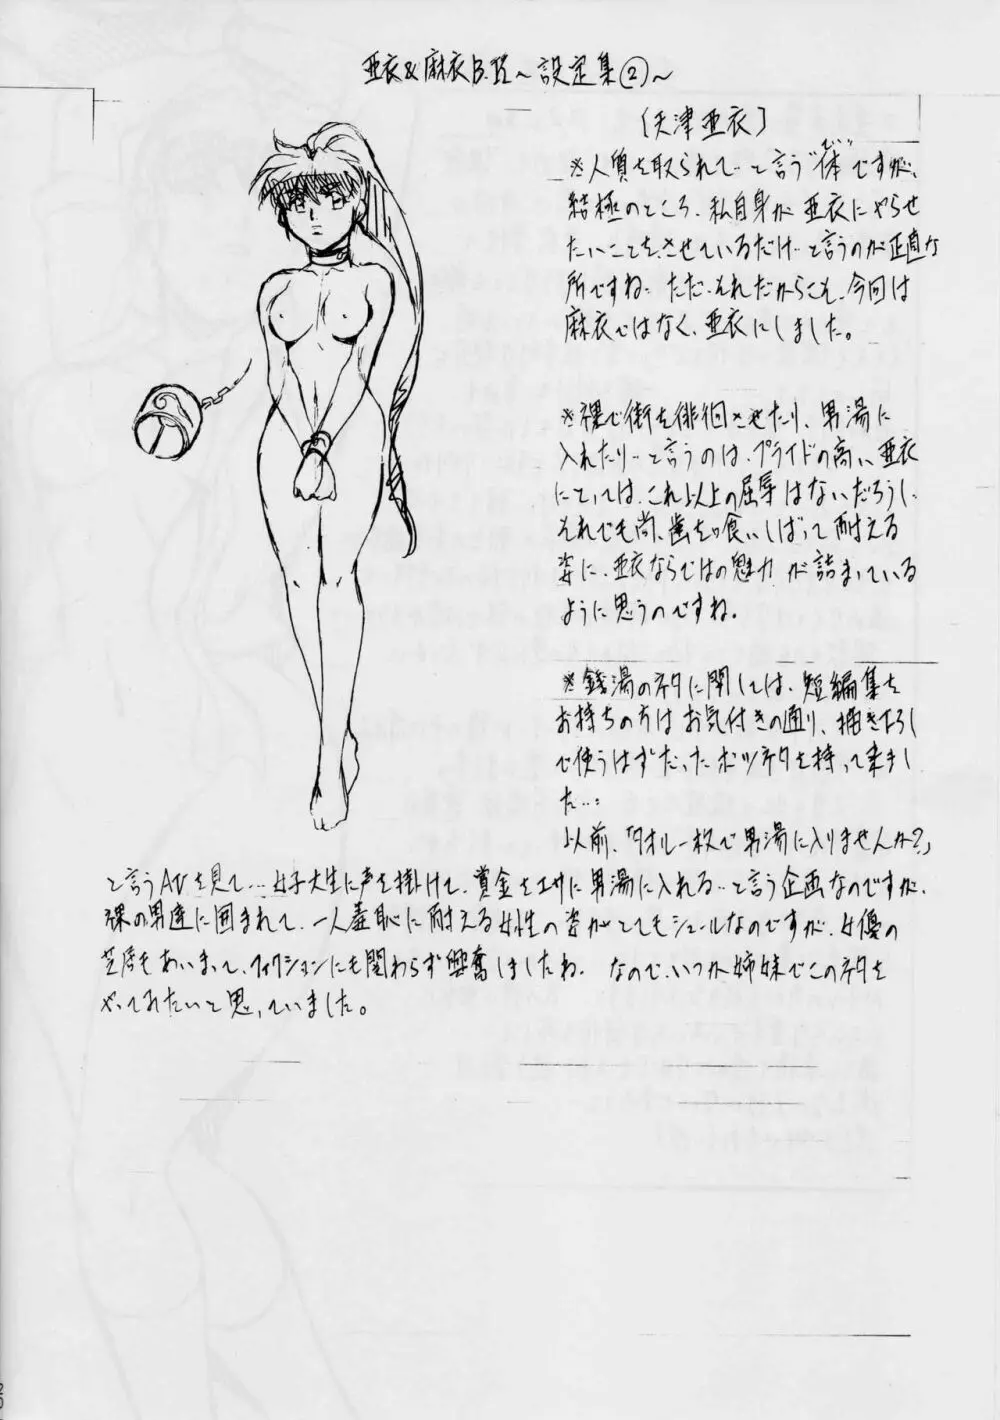 亜衣&麻衣B.2~設定集②~
[天津亜衣]
※人質を取られて…と言う"体"ですが、
結極のところ、私自身が亜衣にやらせ
たいことをさせているだけ…と言うのが正直な
所ですね…ただ、それだからこそ、今回は
麻衣ではなく、亜衣にしました。
※裸で街を徘徊させたり、男湯に
入れたり…と言うのは、プライドの高い亜衣
にとっては、これ以上の屈辱はないだろうし、
それでも尚、歯を喰いしばって耐える
姿に、亜衣ならではの魅力が詰まっている
ように思うのですね。
※銭湯のネタに関しては、短編集を
お持ちの方はお気付きの通り、描き下ろし
で使うはずだったボツネタを持って来まし
た…:
以前、「タオル一枚で男湯に入りませんか?」
と言うAVを見て…女子大生に声を掛けて、賞金をエサに男湯に入れる…と言う企画なのですが、
裸の男達に囲まれて、一人羞恥に耐える女性の姿がとてもシュールなのですが、女優の
芝居もあいまって、フィクションにも関わらず興奮しましたね。なので、いつか姉妹でこのネタを
やってみたいと思っていました。